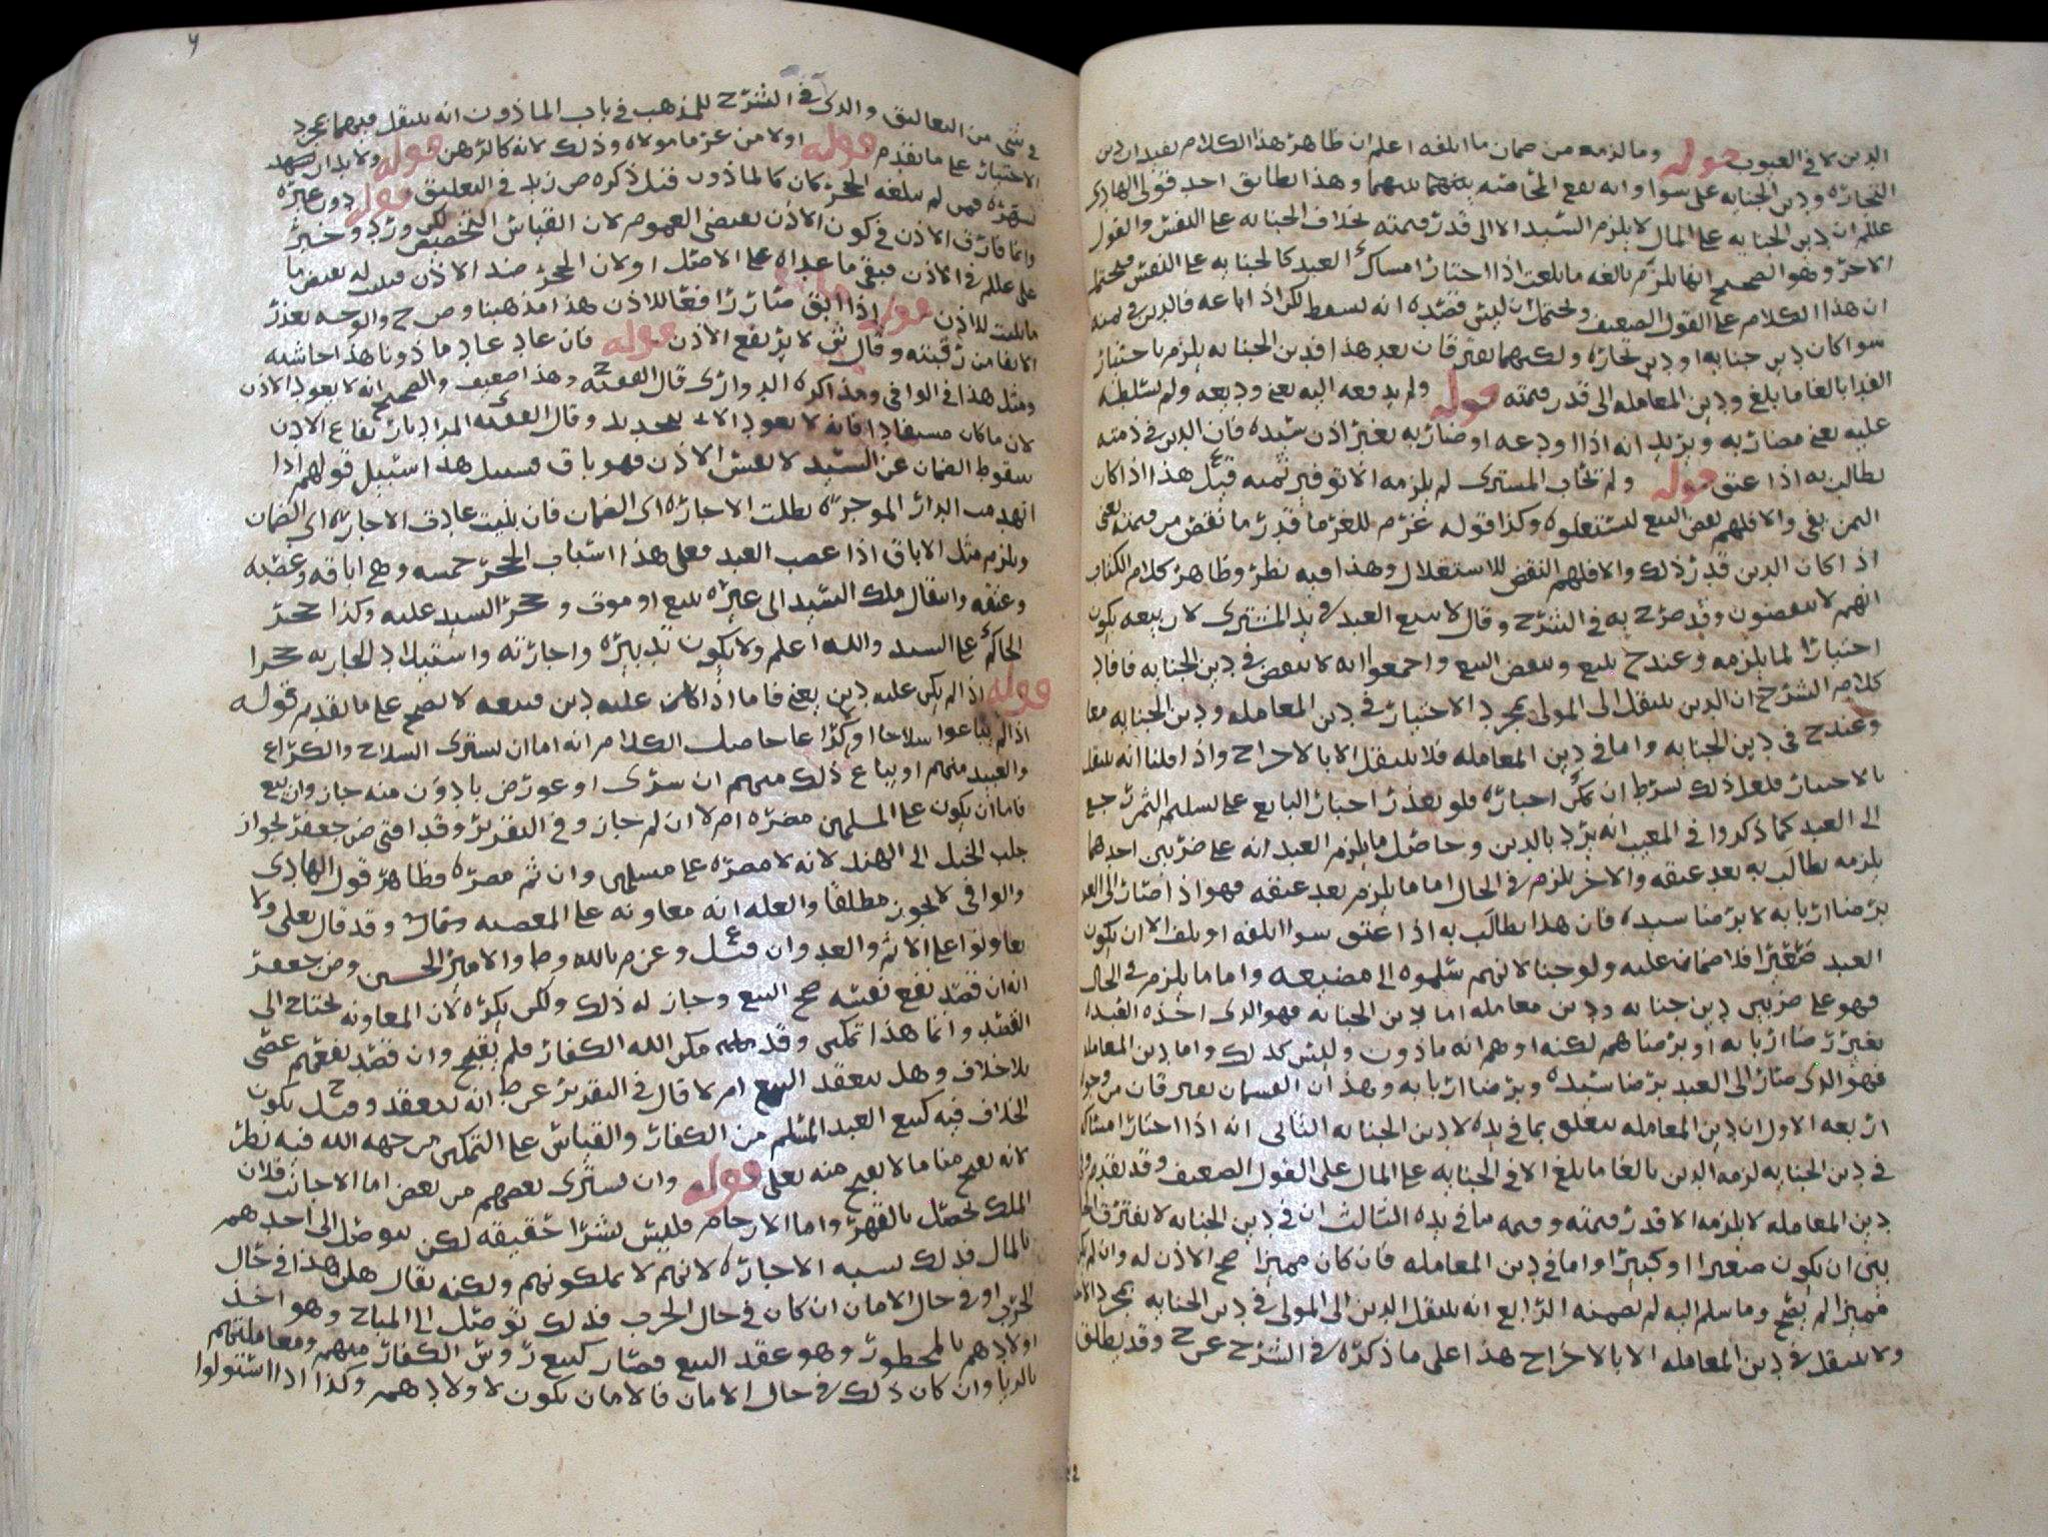 الدين لا في العيوب قوله وما لزمه من ضمان ما اتلفه اعلم ان ظاهر هذا الكلام يفيد ان دين
التجاره ودين الجنايه على سوا وانه تقع المحاصه بينهما وهذا يطابق احد قولي الهادي
علم ان دين الجنايه على المال لا يلزم السيد الا الى قدر قيمته بخلاف الجنايه على النفس والقول
الاخر وهو الصحيح انما يلزم بالغه ما بلغت اذا اختار امساك العبد كالجنايه على النفس فيحتمل
ان هذا الكلام على القول الضعيف ويحتمل ان ليس قصده انه يسقط لكن اذا باعه فالدين في ثمنه
سوا كان دين جنايه او دين تجاره ولكنهما يفترقان بعد هذا فدين الجنايه يلزم باختيار
الفدا بالغا ما بلغ ودين المعامله الى قدر قيمته قوله ولم يدفعه اليه يعني وديعه ولم يسلطه
عليه يعني مضاربه ويريد انه اذا اودعه او ضاربه بغير اذن سيده فان الدين في ذمته
يطالب به اذا عتق قوله ولم تحاب المشتري لم يلزمه الا توفير ثمنه قيل هذا اذا كان
الثمن يفي والا فلهم نقض البيع ليستغلوه وكذا قوله غرم للغرما قدر ما نقص من قيمته يعني
اذا كان الدين قدر ذلك والا فلهم النقض للاستغلال وهذا فيه نظر وظاهر كلام الكتاب
انهم لا ينقضون وقد صرح به في الشرح وقال لا يبيع العبد في يد المشتري لان بيعه يكون
اختيارا لما يلزمه وعند ح يبيع وينقض البيع واجمعوا انه لا ينقض في دين الجنايه فافاد
كلام الشرح ان الدين ينتقل الى المولى بمجرد الاختيار في دين المعامله ودين الجنايه معا
وعند ح في دين الجنايه واما في دين المعامله فلا ينتقل الا بالاخراج واذا قلنا انه ينتقل
بالاختيار فلعل ذلك بشرط ان يمكن اجباره فلو تعذر اجبار البايع على تسليم الثمن رجع
الى العبد كما ذكروا في المعيب انه يرد بالدين وحاصل ما يلزم العبد انه على ضربين احدهما
يلزمه يطالب به بعد عتقه والاخر يلزم في الحال اما ما يلزم بعد عتقه فهو اذا صار الى العبد
برضا اربابه لا برضا سيده فان هذا يطالب به اذا عتق سوا اتلفه او تلف الا ان يكون
العبد صغيرا فلا ضمان عليه ولو جنا لانهم سلموه الى مضيعه واما ما يلزم في الحال
فهو على ضربين دين جنايه ودين معامله اما دين الجنايه فهو الذي اخذه العبد
بغير رضا اربابه او برضاهم لكنه اوهم انه ماذون وليس كذلك واما دين المعامله
فهو الذي صار الى العبد برضا سيده وبرضا اربابه وهذان القسمان يفترقان من وجوه
اربعه الاول ان دين المعامله يتعلق بما في يده لا دين الجنايه الثاني انه اذا اختار امساكه
في دين الجنايه لزمه الدين بالغا ما بلغ الا في الجنايه على المال على القول الضعيف وقد تقدم وفي
دين المعامله لا يلزمه الا قدر قيمته وقيمه ما في يده الثالث ان في دين الجنايه لا يفترق الحال
بين ان يكون صغيرا او كبيرا واما في دين المعامله فان كان مميزا صح الاذن له وان لم يكن
مميزا لم يصح وما سلم اليه لم يضمنه الرابع انه ينتقل الدين الى المولى في دين الجنايه بمجرد
ولا ينتقل في دين المعامله الا بالاخراج هذا على ما ذكره في الشرح عن ح وقد يطلق
في شي من التعاليق والذي في الشرح للمذهب في باب الماذون انه ينتقل فيهما بمجرد
الاختيار على ما تقدم قوله اولا من غرما مولاه وذلك لانه كالرهن قوله ولا بد ان يشهد
لشهره فمن لم يبلغه الحجر كان كالماذون قيل ذكره ص زيد في التعليق قوله دون غيره
وانما فارق الاذن في كون الاذن يقتضي العموم لان القياس التخصيص لكن ورد وخبر
على علم في الاذن فبقي ما عداه على الاصل او لان الحجر ضد الاذن فيثبت له نقيض ما
ما يثبت للاذن قوله اذا ابق صار رافعا للاذن هذا مذهبنا وص ح والوجه تعذر
الايفا من رقبته وقال ش لا يرتفع الاذن قوله فان عاد عاد ماذونا هذا حاشيه
ومثل هذا في الوافي وهذا كره الدواري قال الفقيه ح وهذا ضعيف والصحيح انه لا يعود الاذن
لان ما كان مستفادا فانه لا يعود الا بتجديد وقال الفقيه المراد بارتفاع الاذن
سقوط الضمان عن السيد لا نفس الاذن فهو باق فسبيل هذا سبيل قولهم اذا
انهدمت الدار الموجره بطلت الاجاره اي الضمان فان بنيت عادت الاجاره اي الضمان
ويلزم مثل الاباق اذا غصب العبد فعلى هذا اسباب الحجر خمسه وهي اباقه وغصبه
وعتقه وانتقال ملك السيد الى غيره ببيع او موت وحجر السيد عليه وكذا حجر
الحاكم على السيد والله اعلم ولا يكون تدبيره واجارته واستيلاد الجاريه حجرا
قوله اذا لم يكن عليه دين يعني فاما اذا كان عليه دين فبيعه لا يصح على ما تقدم قوله
اذا لم يبتاعوا سلاحا او كراعا حاصل الكلام انه اما ان يشتري السلاح والكراع
والعبيد منهم او يباع ذلك منهم ان شري او عورض بادون منه جاز وان بيع
فاما ان يكون على المسلمين مضره ام لا ان لم جاز وفي التقرير وقد افتى ض جعفر بجواز
جلب الخيل الى الهند لانه لا مضره على مسلمين وان ثم مضره فظاهر قول الهادي
والوافي لا يجوز مطلقا والعله انه معاونه على المعصيه وقد قال تعلى ولا
تعاونوا على الاثم والعدوان قيل ع وعن م بالله وط والامير الحسين وض جعفر
انه ان قصد نفع نفسه صح البيع وجاز له ذلك ولكن يكره لان المعاونه تحتاج الى
القصد وانما هذا تمكين وقد مكن الله الكفار فلم يقبح وان قصد نفعهم عصى
بلا خلاف وهل ينعقد البيع ام لا قال في التقرير عن ط انه ينعقد وقيل ح يكون
الخلاف فيه كبيع العبد المسلم من الكفار والقياس على التمكين من جهه الله فيه نظر
لانه يقبح منا ما لا يقبح منه تعلى قوله وان يشتري بعضهم من بعض اما الاجانب فلان
الملك يحصل بالقهر واما الارحام فليس بشرا حقيقه لكن يتوصل الى احدهم
بالمال فذلك يشبه الاجاره لانهم لا يملكونهم ولكنه يقال هل هذا في حال
الحرب او في حال الامان ان كان في حال الحرب فذلك توصل الى المباح وهو اخذ
اولادهم بالمحظور وهو عقد البيع فصار كبيع روس الكفار منهم ومعاملتهم
بالربا وان كان ذلك في حال الامان فالامان يكون لاولادهم وكذا اذا استولوا